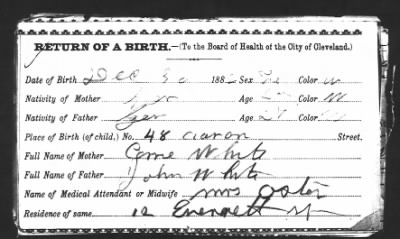 RETURN OF A BIRTH.—(To the Board of Health of the City of Cleveland.)
Date of Birth Dec 188 Sex Color w
Nativity of Mother Ger Age Color W
Nativity of Father Ger Age 27 Color
Place of Birth (of child.) No. 48 Aaron Street.
Full Name of Mother White
Full Name of Father John White
Name of Medical Attendant or Midwife Mrs Oster
Residence of same. 12